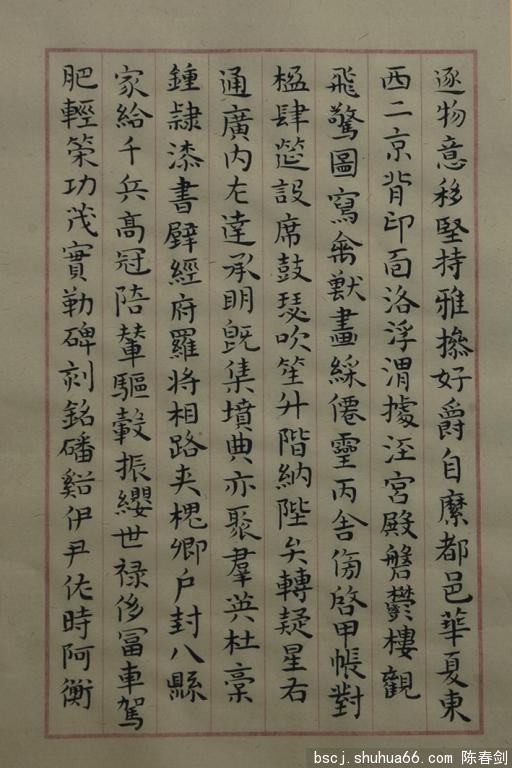 逐物意移堅持雅操好爵自縻都邑華夏東
西二京背邙面洛浮渭據涇宮殿盤鬱樓觀
飛驚圖寫禽獸畫綵僊靈丙舍傍啓甲帳對
楹肆筵設席鼓瑟吹笙升階納陛矣轉疑星右
通廣內左達承明旣集墳典亦聚羣英杜稾
鍾隷漆書壁經府羅將相路夾槐卿戶封八縣
家給千兵高冠陪輦驅轂振纓世禄侈冨車駕
肥輕策功茂實勒碑刻銘磻谿伊尹佐時阿衡
bscj.shuhua66.com 陈春剑